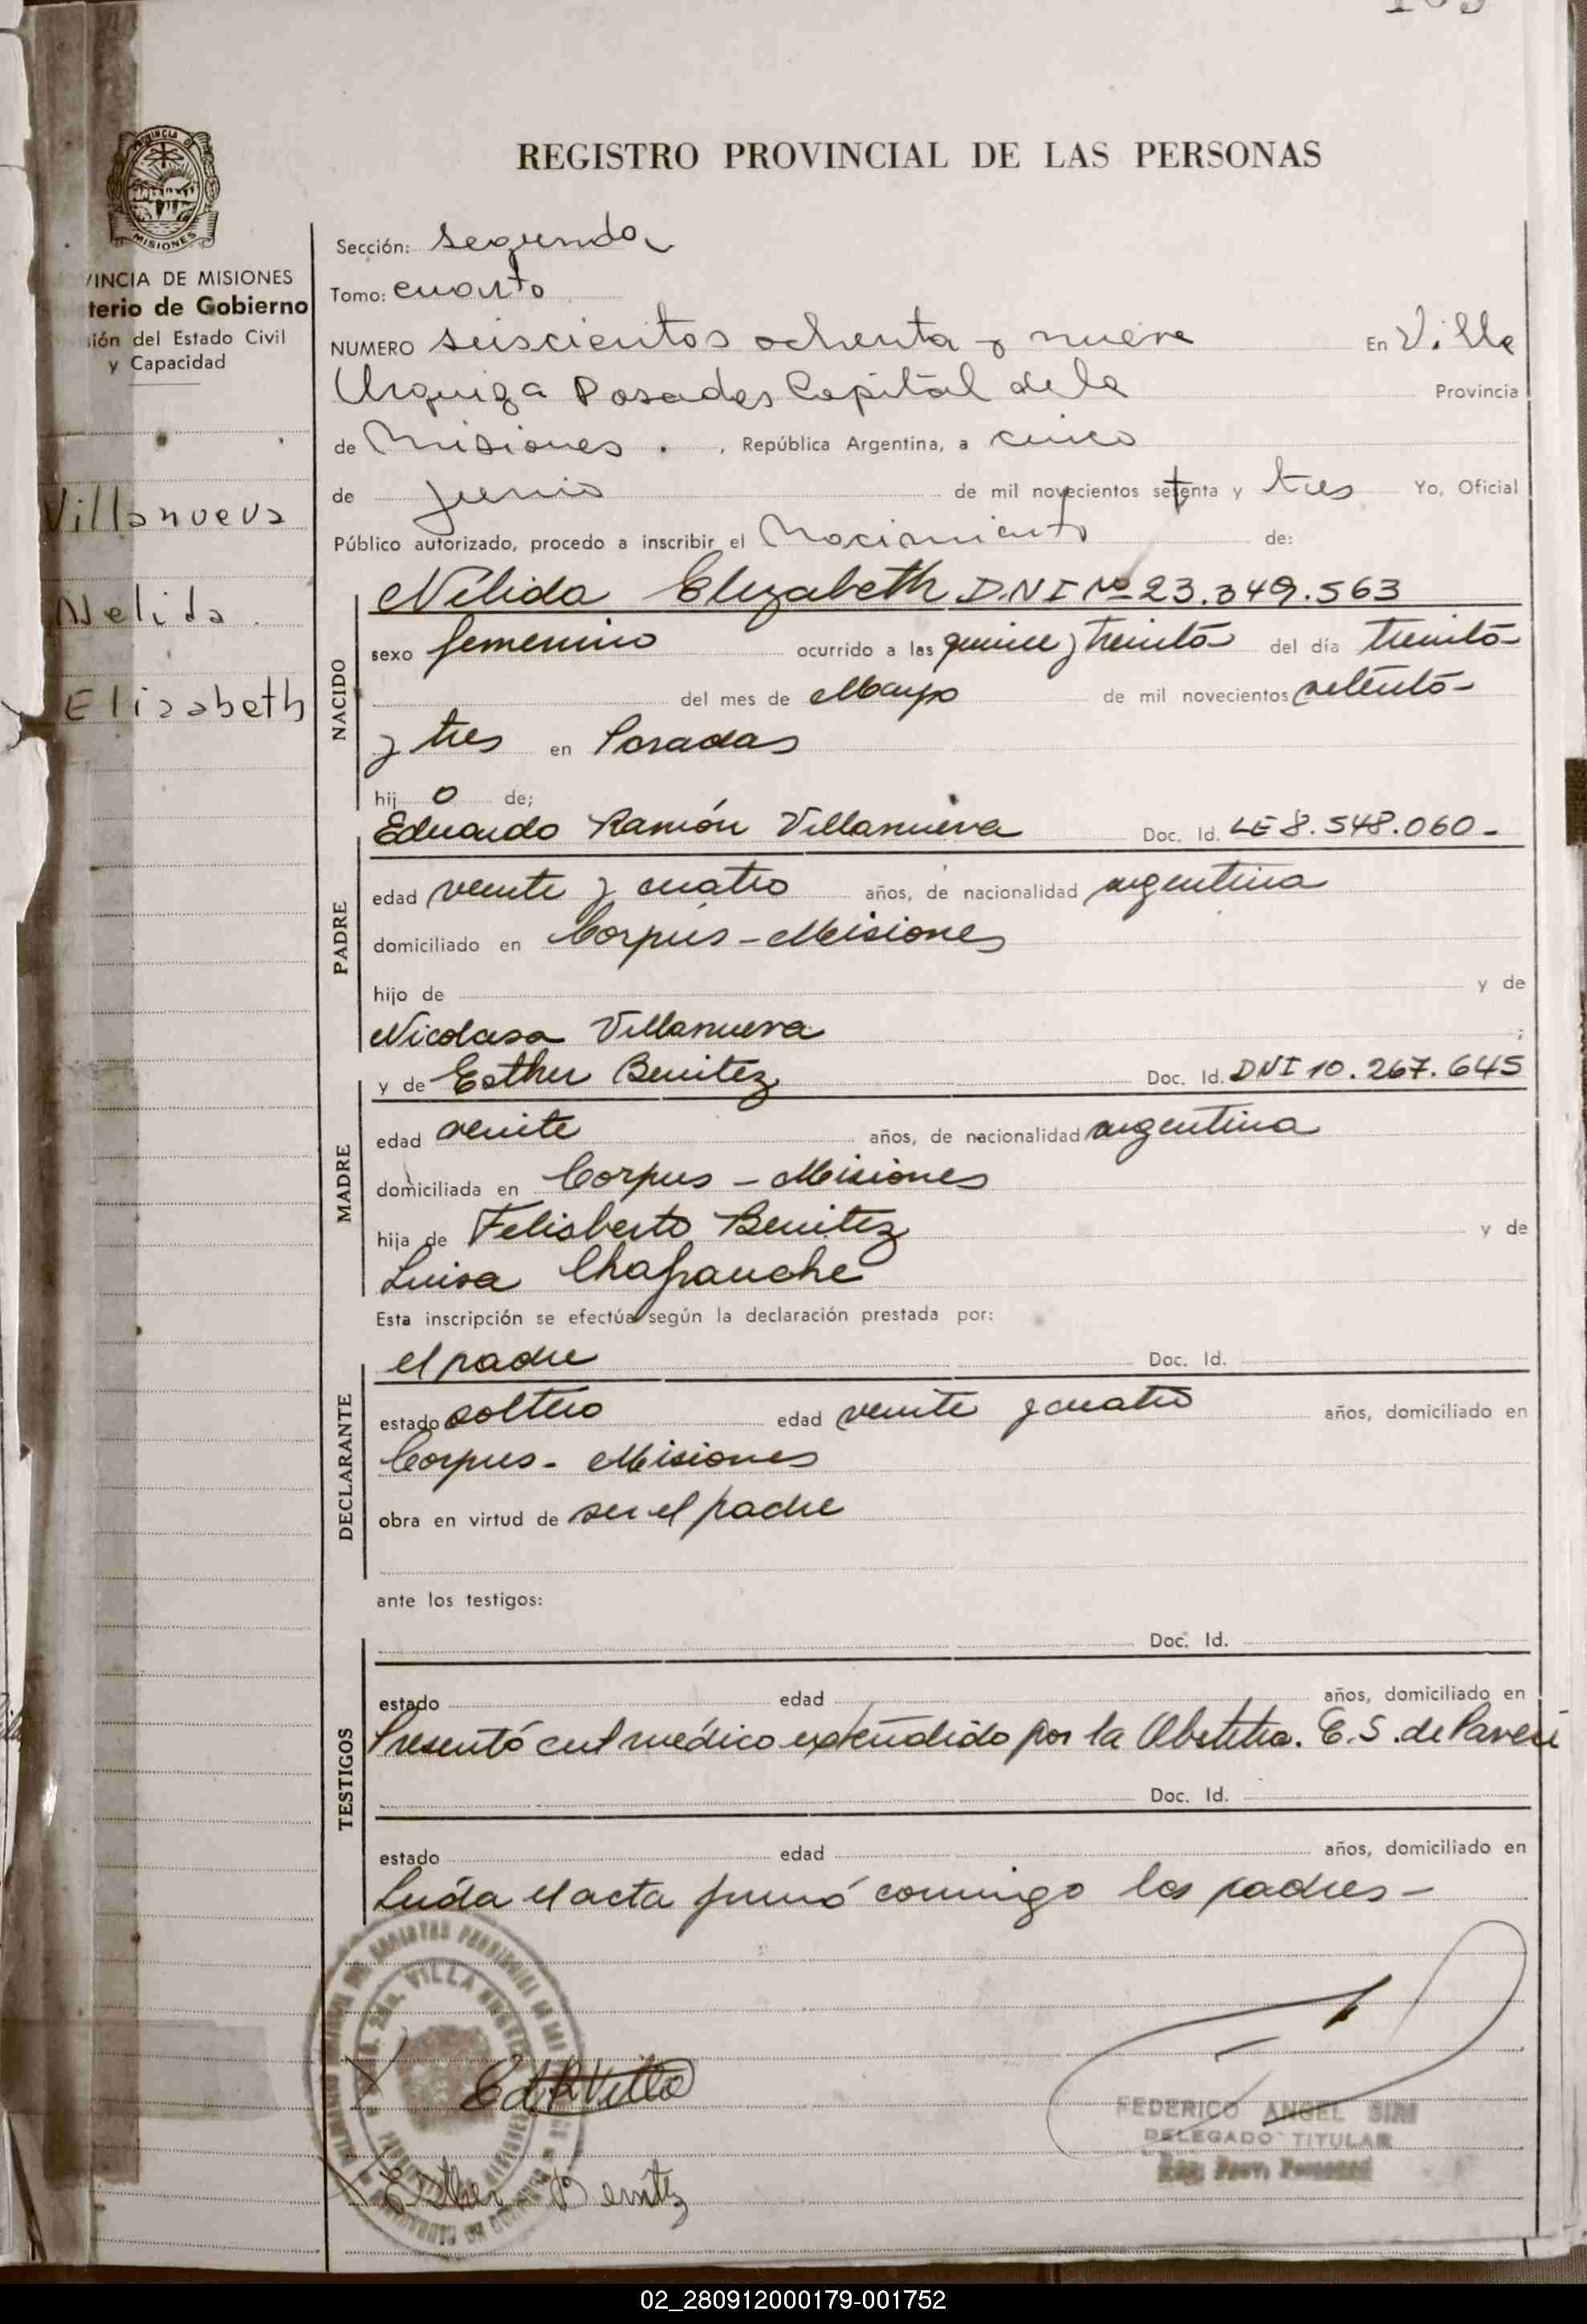 REGISTRO PROVINCIAL DE LAS PERSONAS
PROVINCIA DE
MISIONES
VINCIA DE MISIONES
terio de Gobierno
ión del Estado Civil
y Capacidad
Villanueva
Nelida.
Elizabeth
Sección: segunda
Tomo: cuarto
NUMERO seiscientos ochenta y nueve En Villa
Urquiza Posadas Capital de la Provincia
de Misiones . , República Argentina, a cinco
de junio de mil novecientos setenta y tres Yo, Oficial
Público autorizado, procedo a inscribir el Nacimiento de:
NACIDO
Nélida Elizabeth D.N.I Nº 23.349.563
sexo femenino ocurrido a las quince y treinta del día treinta-
del mes de Mayo de mil novecientos setenta-
y tres en Posadas
hij o de;
PADRE
Eduardo Ramón Villanueva Doc. Id. LE 8.548.060-
edad veinte y cuatro años, de nacionalidad argentina
domiciliado en Corpus-Misiones
hijo de y de
Nicolasa Villanueva ;
MADRE
y de Esther Benitez Doc. Id. DNI 10.267.645
edad veinte años, de nacionalidad argentina
domiciliada en Corpus - Misiones
hija de Felisberto Benitez y de
Luisa
Esta inscripción se efectúa según la declaración prestada por:
DECLARANTE
el padre Doc. Id.
estado soltero edad veinte y cuatro años, domiciliado en
Corpus- Misiones
obra en virtud de ser el padre
ante los testigos:
TESTIGOS
Doc. Id.
estado edad años, domiciliado en
Presentó cert médico extendido por la Obstetra. E.S. de
Doc. Id.
estado edad años, domiciliado en
Leída el acta firmó conmigo los padres-
VILLA
Esther Benitez
FEDERICO ANGEL
DELEGADO TITULAR
02_280912000179-001752